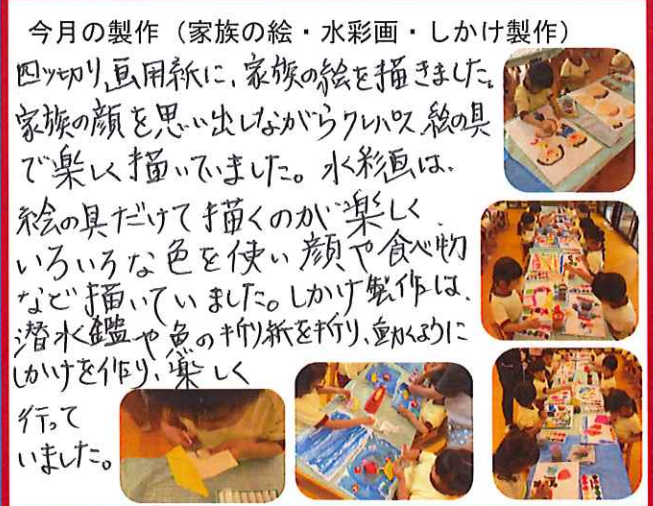 今月の製作（家族の絵・水彩画・しかけ製作）
四ッ切り画用紙に、家族の絵を描きました。
家族の顔を思い出しながらクレパス、絵の具
で楽しく描いていました。水彩画は、
絵の具だけで描くのが楽しく、
いろいろな色を使い顔や食べ物
など描いていました。しかけ製作は、
潜水鑑や魚の折り紙を折り、動くように
しかけを作り、楽しく
行って
いました。